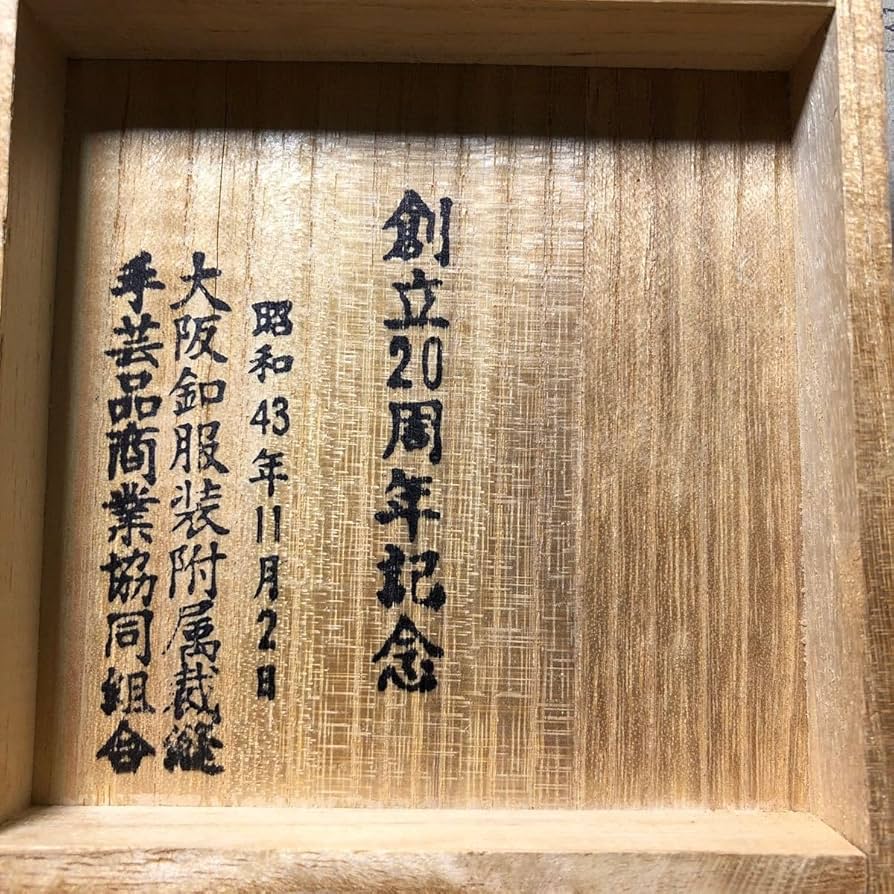 創立20周年記念
昭和43年11月2日
大阪釦服装附属裁縫
手芸品商業協同組合